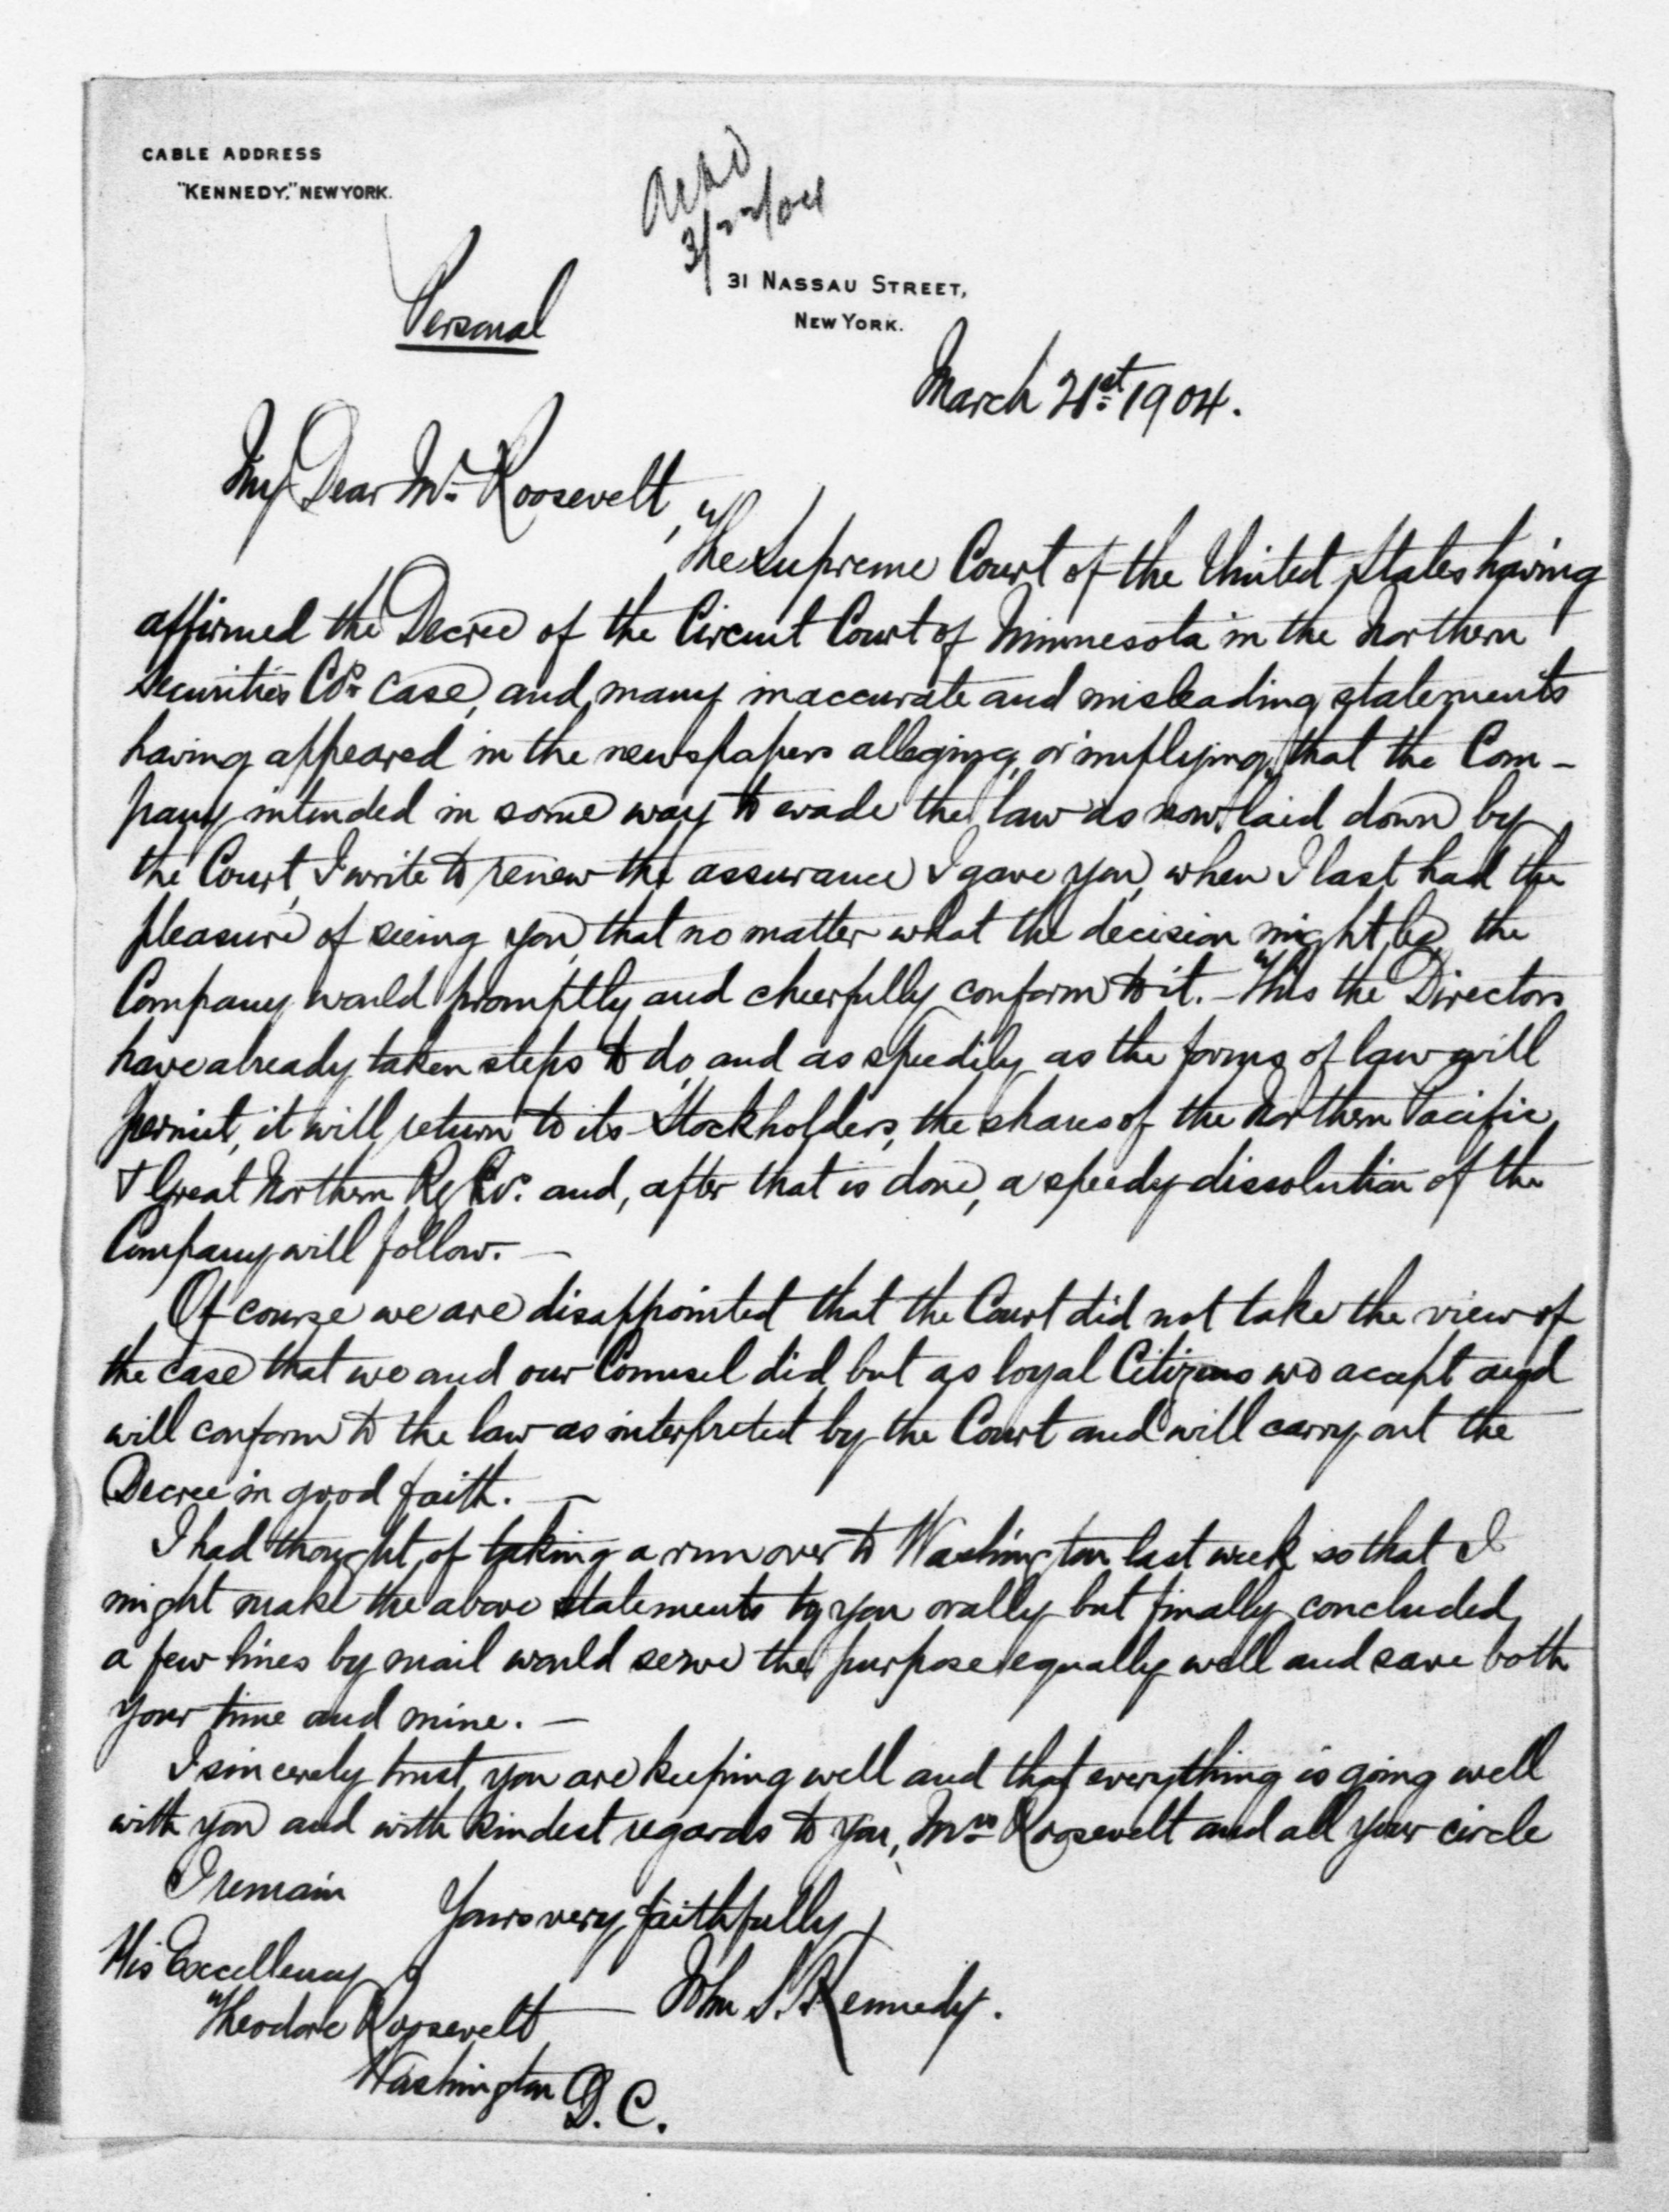 CABLE ADDRESS
"KENNEDY," NEW YORK.
Ackd
3/22/04
31 NASSAU STREET,
NEW YORK.
Personal
March 21st 1904.
My Dear Mr Roosevelt,
The Supreme Court of the United States having
affirmed the Decree of the Circuit Court of Minnesota in the Northern
Securities Co's case, and many inaccurate and misleading statements
having appeared in the newspapers alleging, or implying, that the Com-
pany intended in some way to evade the law as now laid down by
the Court, I write to renew the assurance I gave you, when I last had the
pleasure of seeing you, that no matter what the decision might be, the
Company would promptly and cheerfully conform to it. - This the Directors
have already taken steps to do, and as speedily as the forms of law will
permit, it will return to its Stockholders, the shares of the Northern Pacific
& Great Northern Ry Cos. and, after that is done, a speedy dissolution of the
Company will follow. —
Of course we are disappointed that the Court did not take the view of
the case that we and our Counsel did, but as loyal Citizens we accept and
will conform to the law as interpreted by the Court and will carry out the
Decree in good faith. —
I had thought of taking a run over to Washington last week so that I
might make the above statements to you orally but finally concluded,
a few lines by mail would serve the purpose equally well and save both
your time and mine. —
I sincerely trust, you are keeping well and that everything is going well
with you and with kindest regards to you, Mrs Roosevelt and all your circle
I remain
Yours very faithfully
His Excellency
John S. Kennedy.
Theodore Roosevelt
Washington D. C.